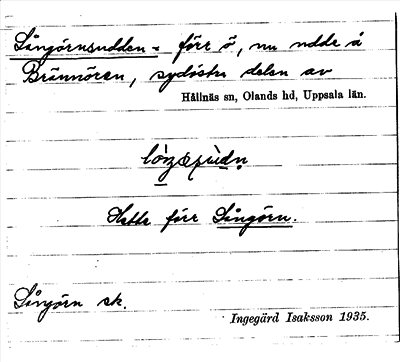 Långörnsudden = förr ö, nu udde å
Brännören, sydöstra delen av
Hållnäs sn, Olands hd, Uppsala län.
Hette förr Långörn.
Långörn sk.
Ingegärd Isaksson 1935.